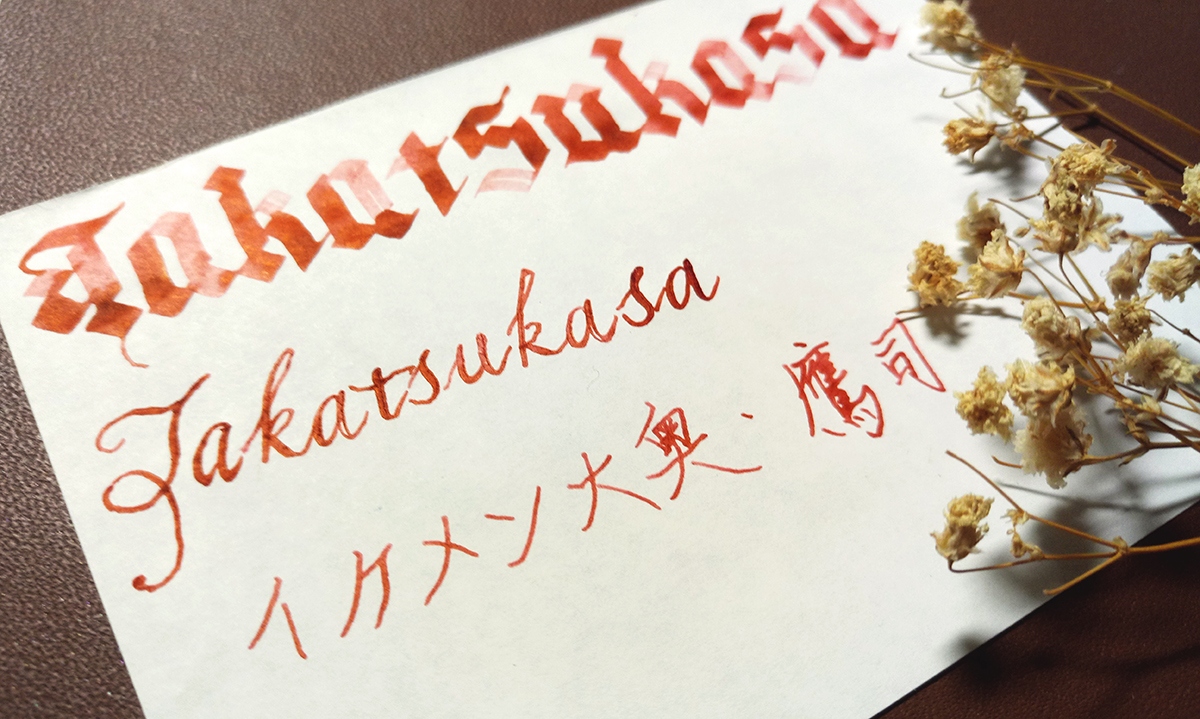 Takatsukasa
Takatsukasa
イケメン大奥·鷹司